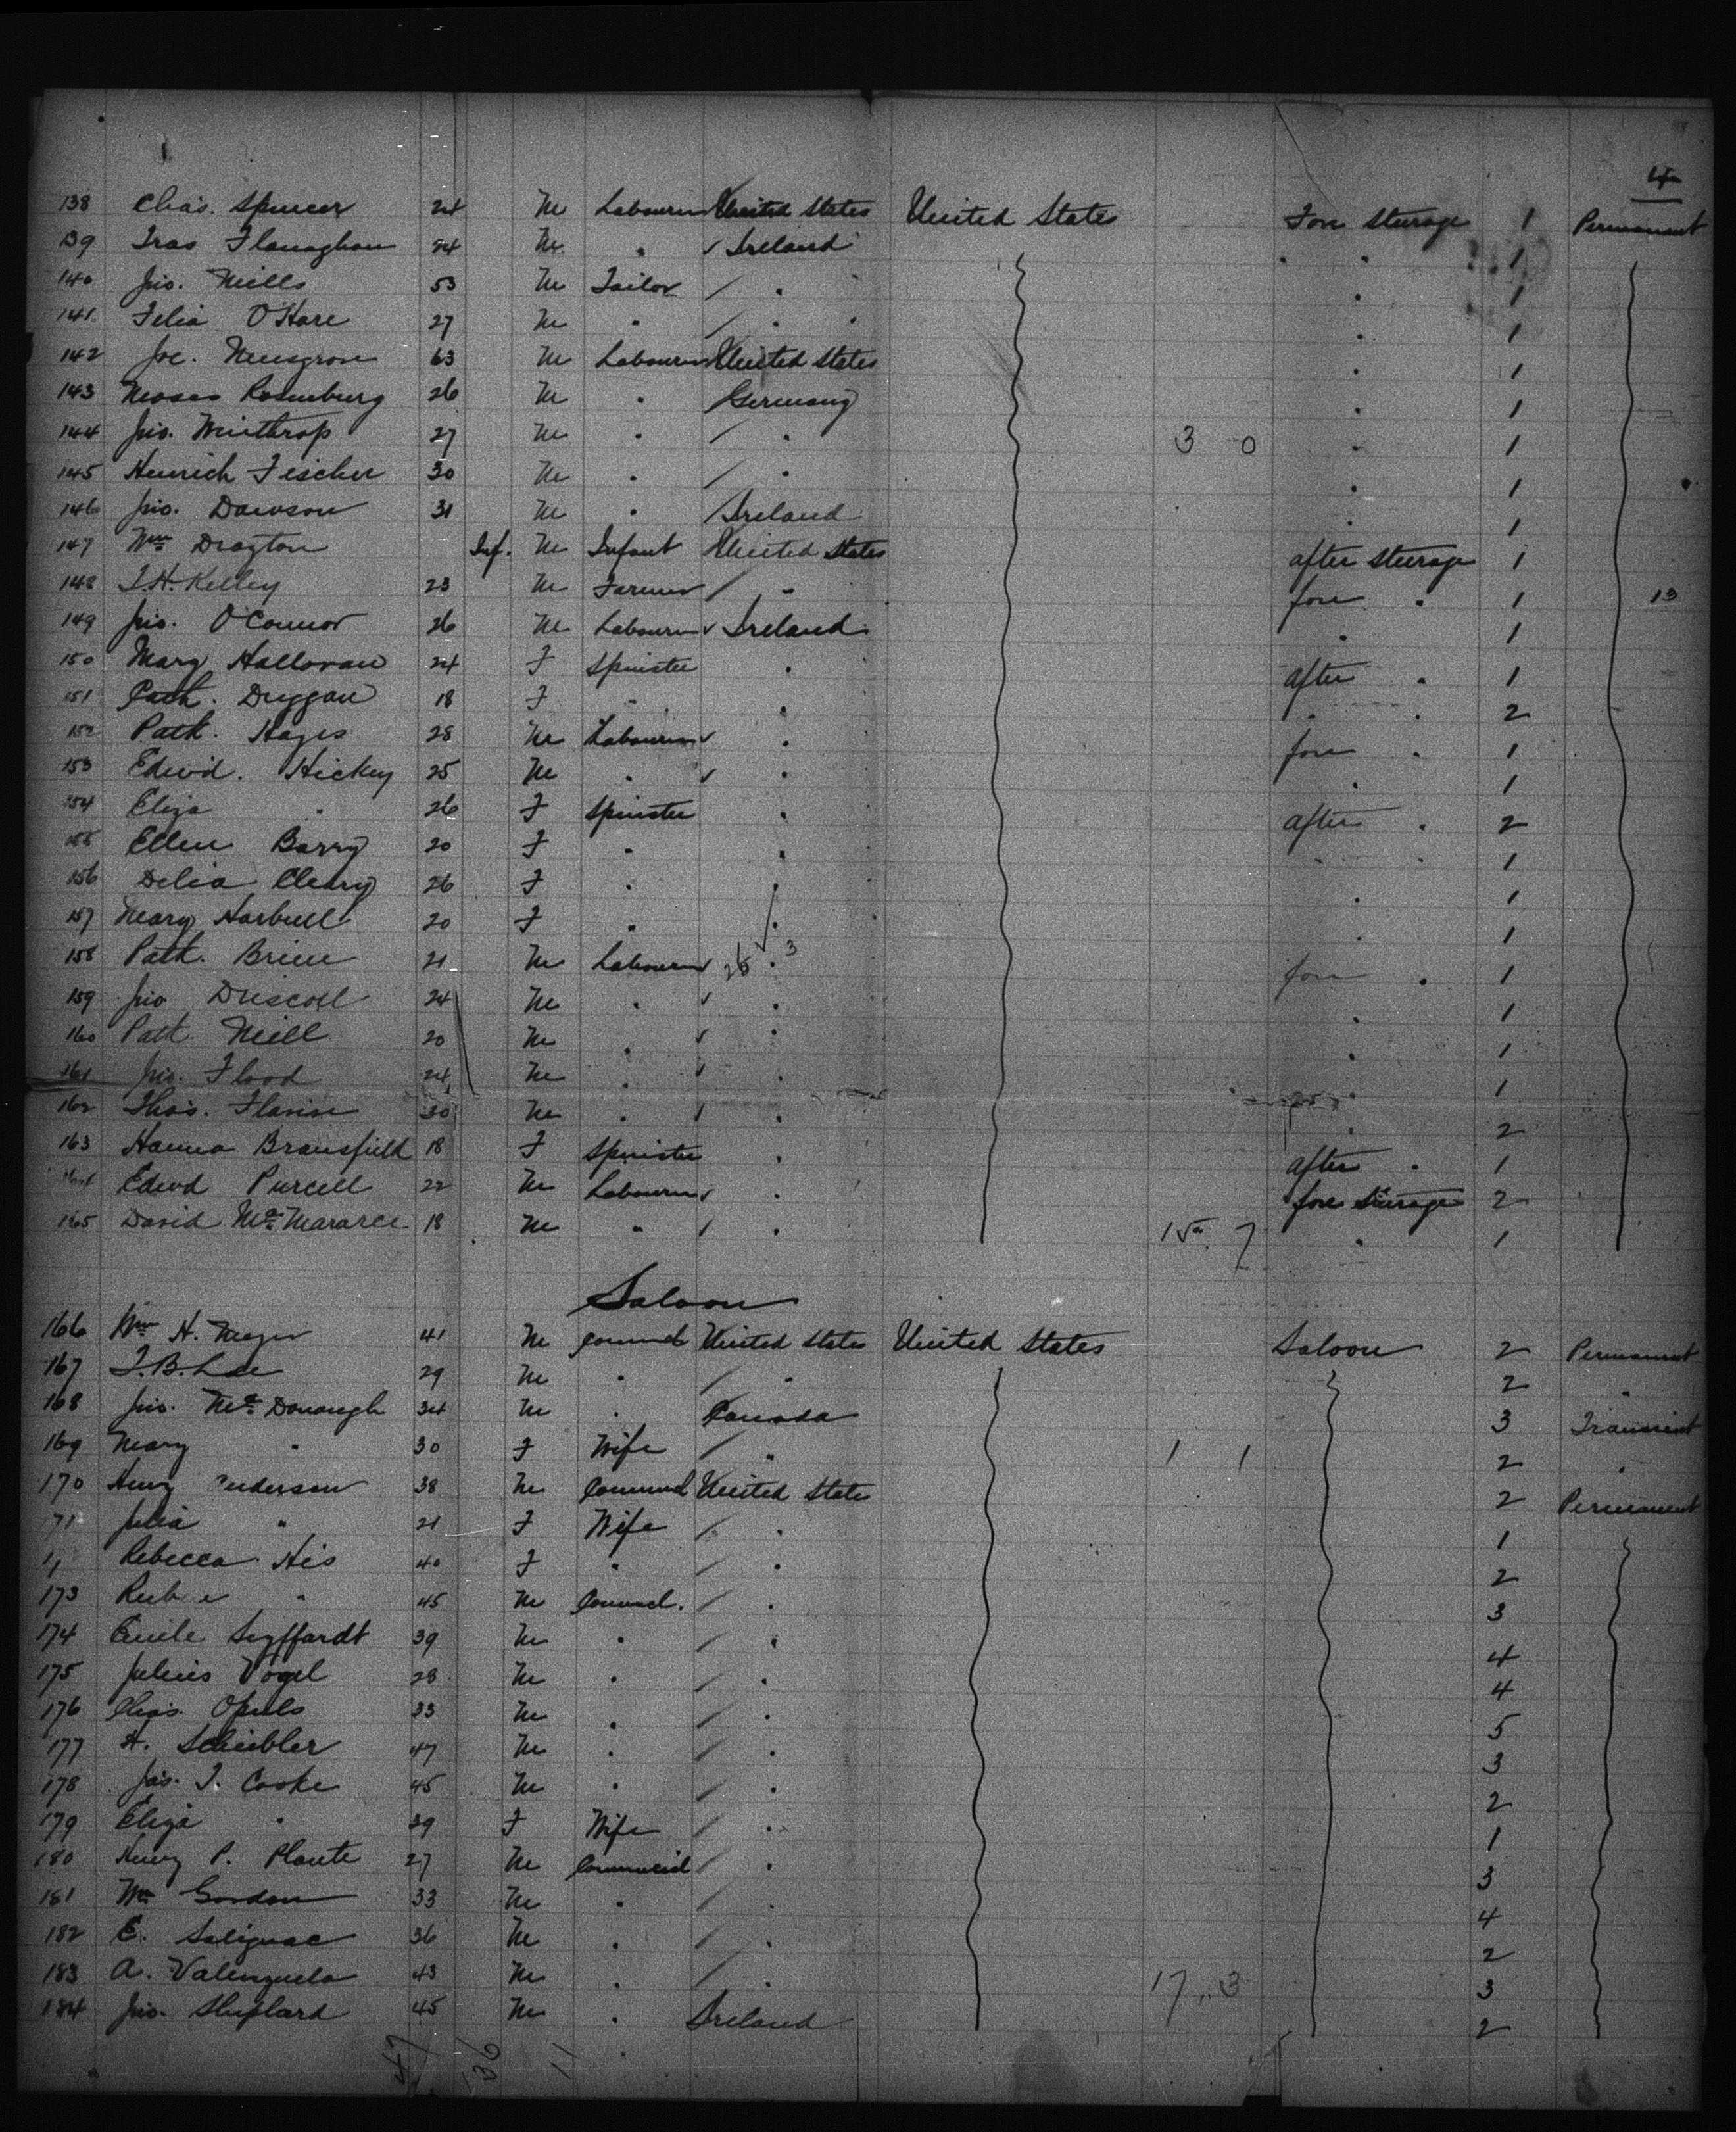 4
138 Chas. Spencer 24 M Labourer United States United States Fore Steerage 1 Permanent
139 Flanaghan 54 M " Ireland " " 1
140 Jno. Mills 53 M Tailor " " 1
141 O'Hare 27 M " " " 1
142 Jos. Musgrove 63 M Labourer United States " 1
143 Moses Rosenburg 26 M " Germany " 1
144 Jno. Winthrop 27 M " " 3 0 " 1
145 Heinrich Fischer 30 M " " " 1
146 Jno. Dawson 31 M " Ireland " 1
147 Wm Drayton Inf. M Infant United States after steerage 1
148 T.H. Kelley 23 M Farmer " fore " 1 13
149 Jno. O'Connor 26 M Labourer Ireland " 1
150 Mary Halloran 24 F Spinster " after " 1
151 Cath. Duggan 18 F " " " " 2
152 Patk. Hayes 28 M Labourer " fore " 1
153 Edwd. Hickey 25 M " " " 1
154 Eliza " 26 F Spinster " after " 2
155 Ellen Barry 20 F " " " " 1
156 Delia Cleary 26 F " " " 1
157 Mary 20 F " " " 1
158 Patk. Brine 21 M Labourer " 3 fore " 1
159 Jno Driscoll 24 M " " " 1
160 Patk. Neill 20 M " " " 1
161 Jno. Flood 24 M " " " 1
162 Thos. 30 M " " " 2
163 Hanna Bransfield 18 F Spinster " after " 1
164 Edwd Purcell 22 M Labourer " fore steerage 2
165 David 18 M " " 15 7 " 1
Saloon
166 Wm H. Meyer 41 M United States United States Saloon 2 Permanent
167 T.B. Lee 29 M " " 2 "
168 Jno. McDonough 34 M " Canada 3 Transient
169 Mary " 30 F Wife " 1 1 2 "
170 Henry Anderson 38 M United States 2 Permanent
171 Julia " 21 F Wife " 1
Rebecca His 40 F " " 2
173 " 45 M " 3
174 Emile Seyffardt 39 M " " 4
175 Julius Vogel 28 M " " 4
176 Chas. Opels 33 M " " 5
177 H. Scheibler 47 M " " 3
178 Jas. T. Cooke 45 M " " 2
179 Eliza " 39 F Wife " 1
180 Henry P. Plante 27 M Commercial " 3
181 Wm Gordon 33 M " " 4
182 E. Salignac 36 M " " 2
183 A. Valenzuela 43 M " " 17 3 3
184 Jno. Sheplard 45 M " Ireland 2
47 36 11